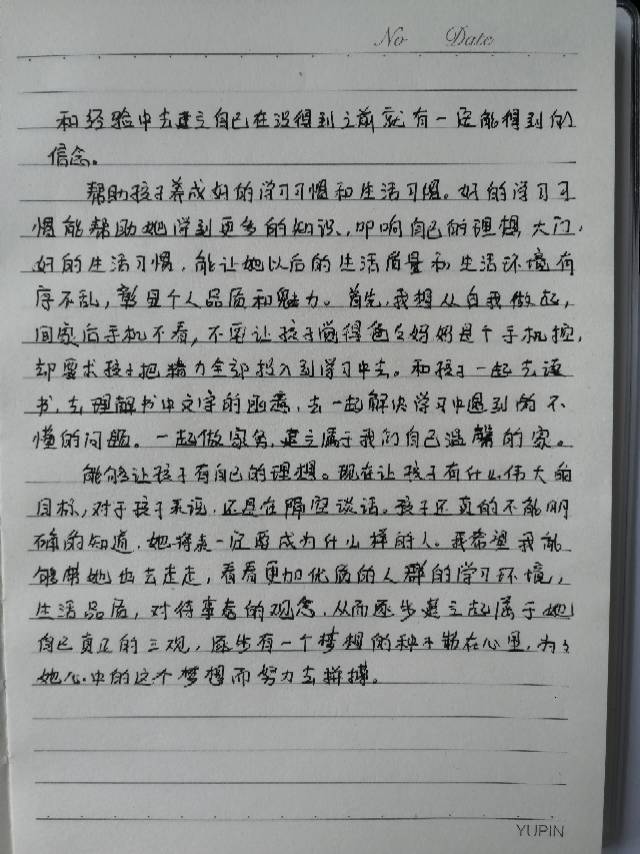 No Date
和经验中去建立自己在没得到之前就有一定能得到的
信念。
帮助孩子养成好的学习习惯和生活习惯。好的学习习
惯能帮助她学到更多的知识、叩响自己的理想大门,
好的生活习惯,能让她以后的生活质量和生活环境有
序不乱,彰显个人品质和魅力。首先,我想从自我做起,
回家后手机不看,不要让孩子觉得爸爸妈妈是个手机控,
却要求孩子把精力全部投入到学习中去。和孩子一起去读
书,去理解书中文字的函意,去一起解决学习中遇到的不
懂的问题。一起做家务,建立属于我们自己温馨的家。
能够让孩子有自己的理想。现在让孩子有什么伟大的
目标,对于孩子来说,还是在隔空谈话。孩子还真的不能明
确的知道,她将来一定要成为什么样的人。我希望我能
够带她出去走走,看看更加优质的人群的学习环境,
生活品质,对待事态的观念,从而逐步建立起属于她
自己真正的三观,逐步有一个梦想的种子锄在心里,为了
她心中的这个梦想而努力去拼搏。
YUPIN